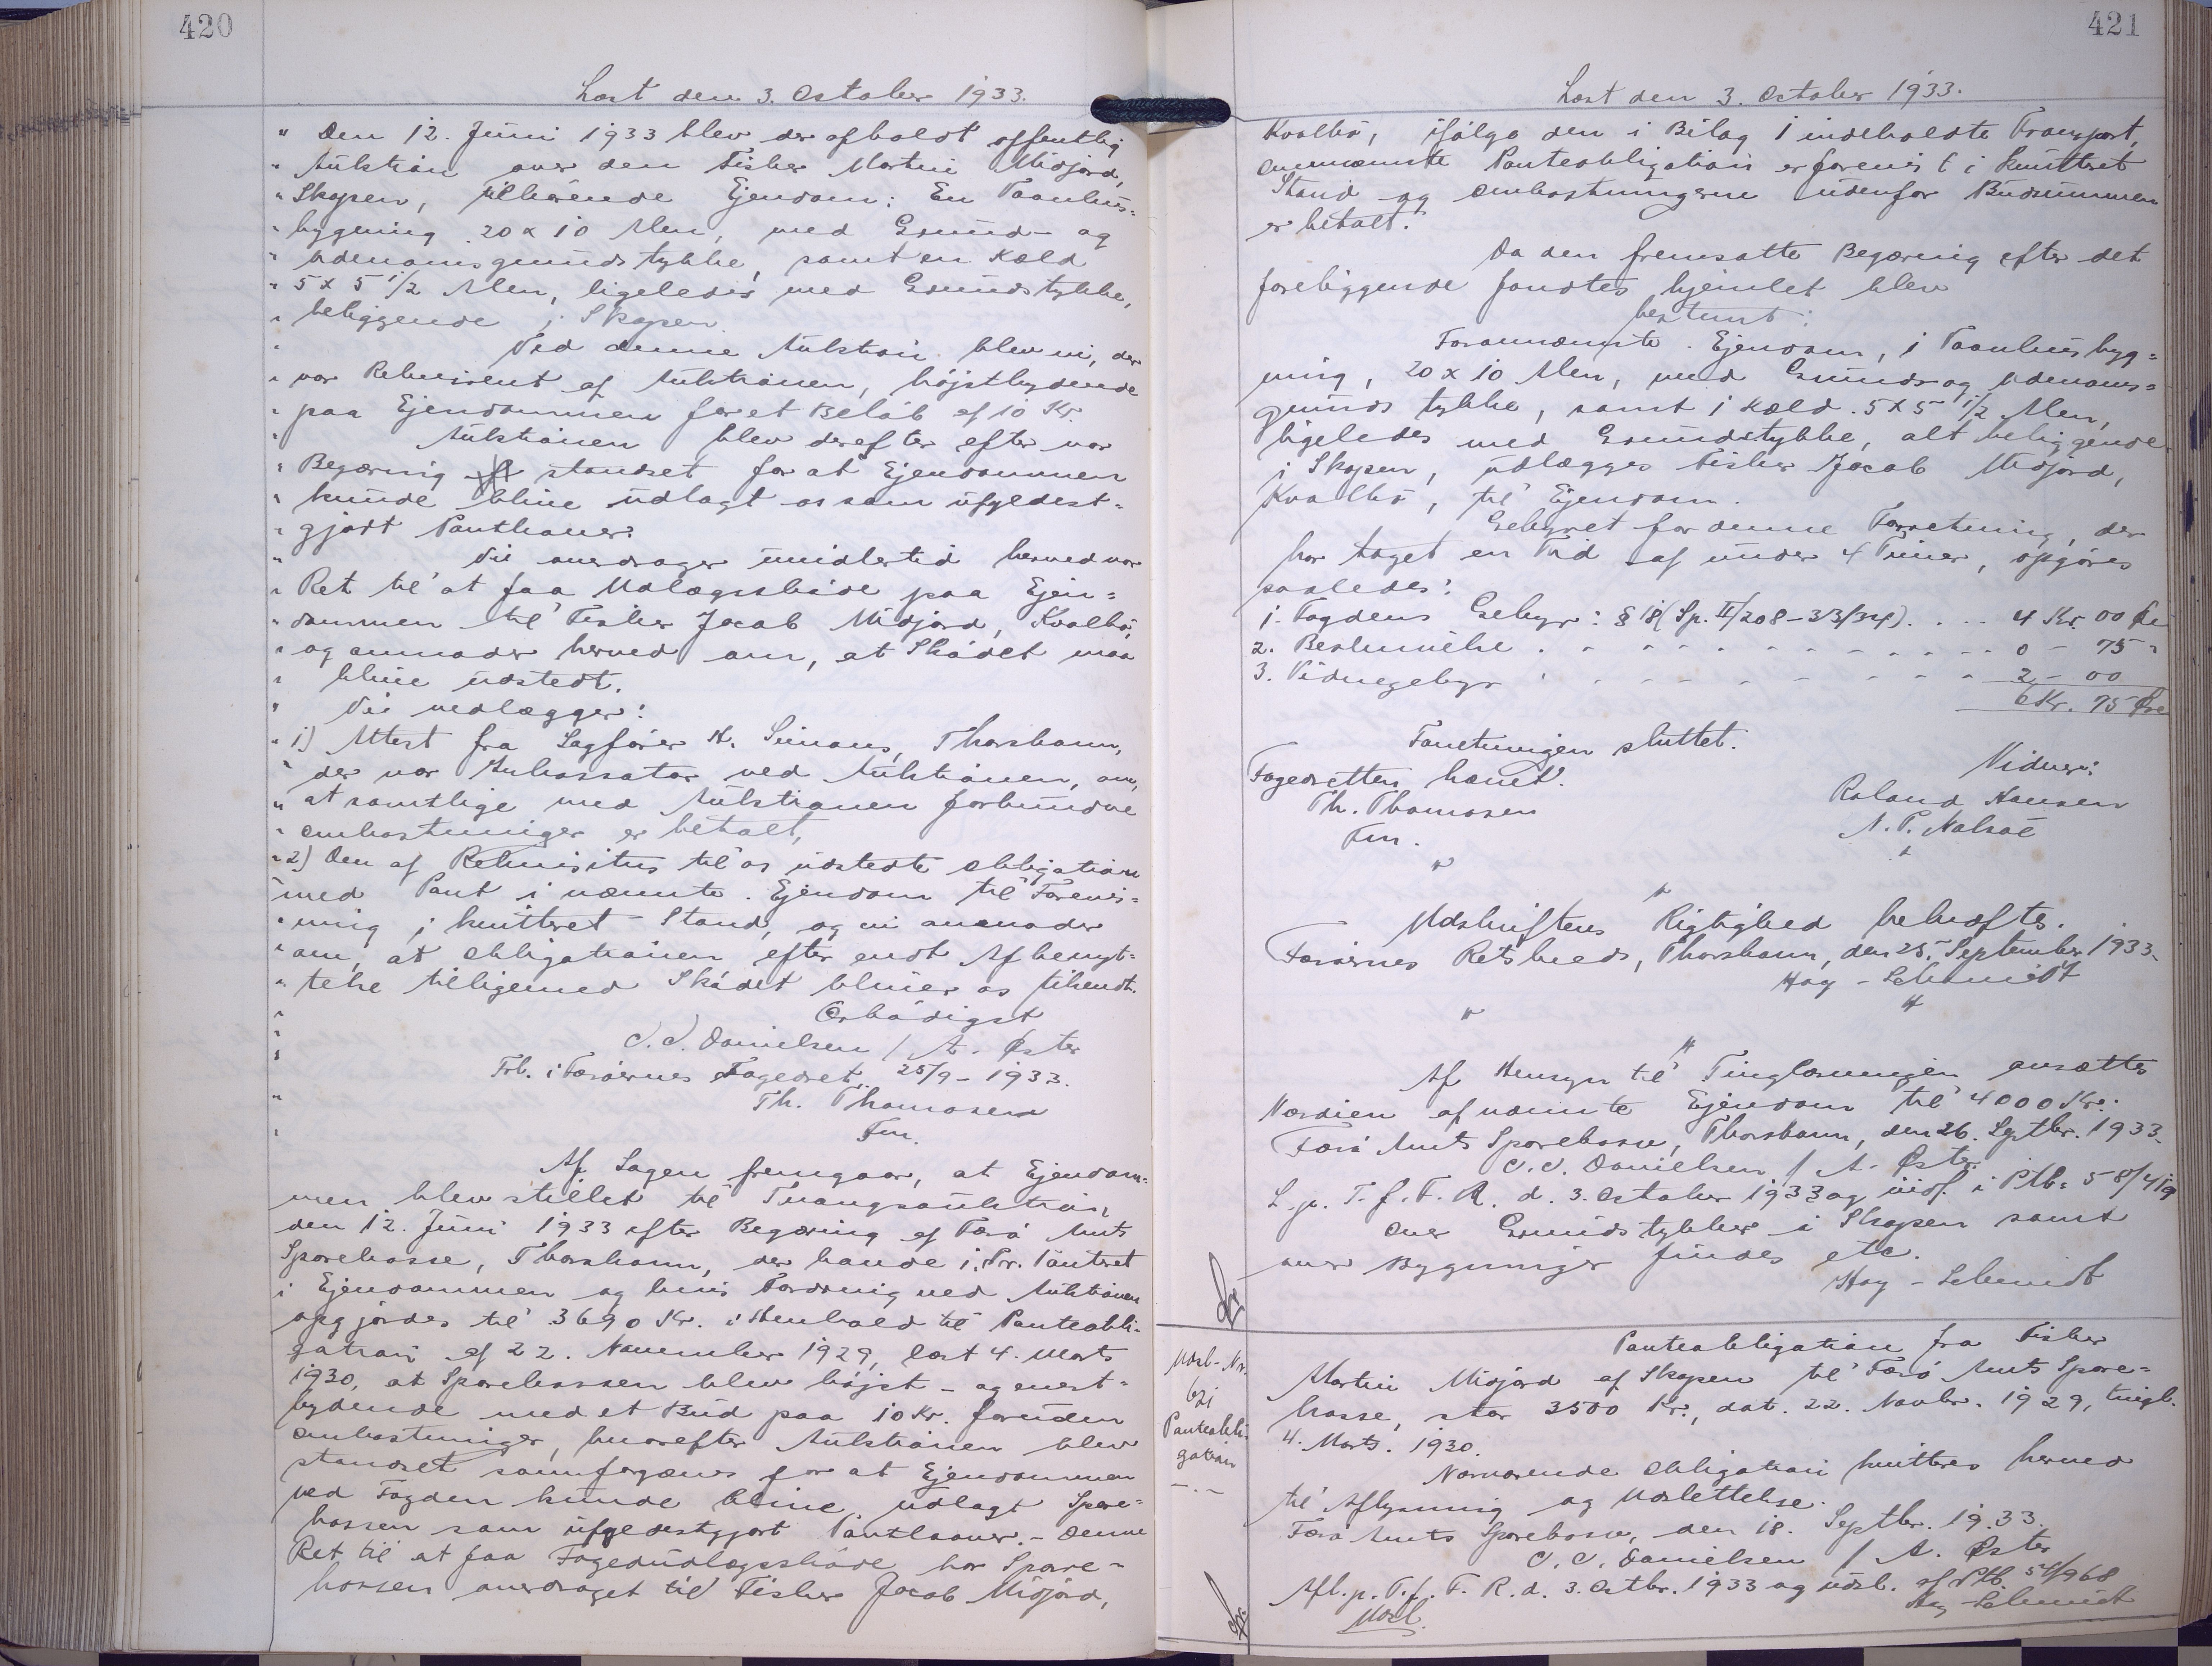 420
Læst den 3. October 1933.
" Den 12. Juni 1933 blev der afholdt offentlig
" Auktion over den Fisker Martin Midjord,
" Skopen, tilhørende Ejendom: En Vaanhus-
" bygning 20 x 10 Alen, med Grund- og
" Udenomsgrundstykke, samt en Kæld
" 5 x 5 1/2 Alen, ligeledes med Grundstykke,
" beliggende i Skopen.
" Ved denne Auktion blev vi, der
" var Rekvirent af Auktionen, højstbydende
" paa Ejendommen for et Beløb af 10 Kr.
" Auktionen blev derefter efter vor
" Begæring standset for at Ejendommen
" kunde blive udlagt os som ufyldest-
" gjort Panthaver.
" Vi overdrager imidlertid herved vor
" Ret til at faa Udlægsskøde paa Ejen-
" dommen til Fisker Jacob Midjord, Kvalbø,
" og anmoder herved om, at Skødet maa
" blive udstedt.
" Vi vedlægger:
" 1) Attest fra Sagfører K. Simons, Thorshavn,
" der var Inkassator ved Auktionen, om,
" at samtlige med Auktionen forbundne
" Omkostninger er betalt,
" 2) Den af Rekvisitus til os udstedte Obligation
" med Pant i nævnte Ejendom til Forevis-
" ning i kvitteret Stand, og vi anmoder
" om, at Obligationen efter endt Afbenyt-
" telse tilligemed Skødet bliver os tilsendt.
" Ærbødigst
" C. C. Danielsen / A. Øster
Frb. i Færøernes Fogedret, 25/9 - 1933.
" Th. Thomosen
" Fm.
Af Sagen fremgaar, at Ejendom-
men blev stillet til Tvangsauktion
den 12. Juni 1933 efter Begæring af Færø Amts
Sparekasse, Thorshavn, der havde 1. Pr. Panteret
i Ejendommen og hvis Fordring ved Auktionen
opgjordes til 3690 Kr. i Henhold til Panteobli-
gation af 22. November 1929, læst 4. Marts
1930, at Sparekassen blev højst- og enest-
bydende med et Bud paa 10 Kr. foruden
Omkostninger, hvorefter Auktionen blev
standset for at Ejendommen
ved Fogden kunde blive udlagt Spare-
kassen som ufyldestgjort Panthaver. - Denne
Ret til at faa Fogedudlægsskøde har Spare-
kassen overdraget til Fisker Jacob Midjord,
421
Læst den 3. October 1933.
Kvalbø, ifølge den i Bilag 1 indeholdte Transport,
Omnævnte Panteobligation er forevist i kvitteret
Stand og Omkostningerne udenfor Budsummen
er betalt.
Da den fremsatte Begæring efter det
foreliggende fandtes hjemlet blev
bestemt:
Forannævnte Ejendom, 1 Vaanhusbyg-
ning, 20 x 10 Alen, med Grund- og Udenoms-
grundstykke, samt 1 Kæld 5 x 5 1/2 Alen,
ligeledes med Grundstykke, alt beliggende
i Skopen, udlægges Fisker Jacob Midjord,
Kvalbø, til Ejendom.
Gebyret for denne Forretning, der
har taget en Tid af under 4 Timer, opgøres
saaledes:
1. Fogdens Gebyr: § 18 (Sp. II/208-33/34) . . . 4 Kr. 00 Øre
2. Beskrivelse . - - - - - - - - - - - 0 - 75 "
3. Vidnegebyr - - - - - - - - - 2 - 00
6 Kr. 75 Øre
Forretningen sluttet.
Fogedretten hævet.
Vidner:
Th. Thomosen
Roland Hansen
Fm.
N. P. Nolsøe
Udskriftens Rigtighed bekræftes.
Færøernes Retskreds, Thorshavn, den 25. September 1933.
Hag-Schmidt
Af Hensyn til Tinglæsningen ansættes
Værdien af nævnte Ejendom til 4000 Kr.
Færø Amts Sparekasse, Thorshavn, den 26. Septbr. 1933.
C. C. Danielsen / A. Øster
L. p. T. f. F. R. d. 3. October 1933 og indf. i Ptb. 58/419
over Grundstykker i Skopen samt
over Bygninger findes etc.
Hag-Schmidt
Udsl-Nr.
621
Panteobli-
gation
- . -
Panteobligation fra Fisker
Martin Midjord af Skopen til Færø Amts Spare-
kasse, stor 3500 Kr., dat. 22. Novbr. 1929, tingl.
4. Marts. 1930.
Nærværende Obligation kvitteres herved
til Aflysning og Udslettelse.
Færø Amts Sparekasse, den 18. Septbr. 1933.
C. C. Danielsen / A. Øster
Afl. p. T. f. F. R. d. 3. Octbr. 1933 og udsl. af Ptb. 54/968
Hag-Schmidt
Udsl.